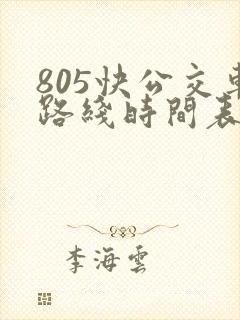 805快公交車
路綫時間表
李海雲